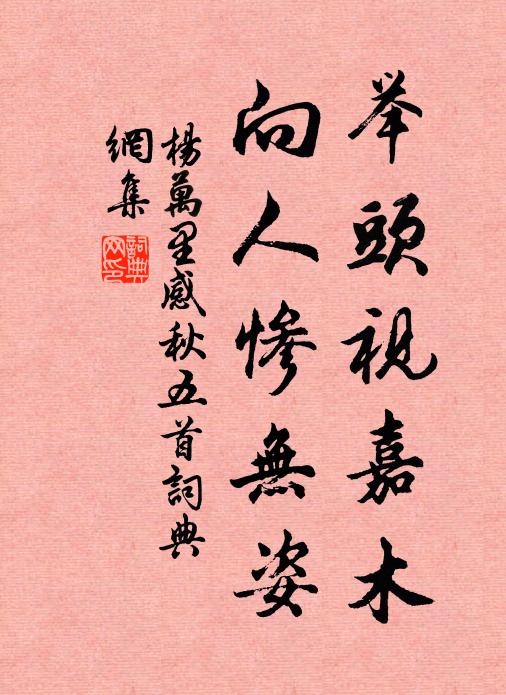 举頭視嘉木
向人惨無姿
楊萬里感秋五首詞典
網集
詞典
网印